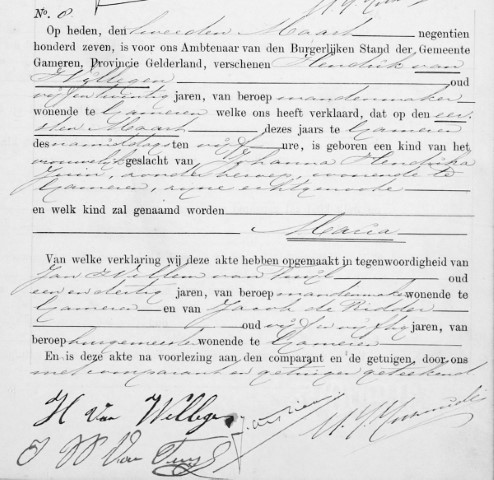 No. 8.
Op heden, den tweeden Maart negentien
honderd zeven, is voor ons Ambtenaar van den Burgerlijken Stand der Gemeente
Gameren, Provincie Gelderland, verschenen Hendrik van
oud
jaren, van beroep mandenmaker
wonende te Gameren welke ons heeft verklaard, dat op den eer-
sten Maart dezes jaars te Gameren
des namiddags ten vijf ure, is geboren een kind van het
vrouwelijk geslacht van Johanna Hendrika
zonder beroep, wonende te
Gameren, zijne echtgenoote
en welk kind zal genaamd worden
Maria
Van welke verklaring wij deze akte hebben opgemaakt in tegenwoordigheid van
Jan Willem van oud
een en dertig jaren, van beroep mandenmaker wonende te
Gameren en van Jacob de Ridder
oud vijf en vijftig jaren, van
beroep wonende te Gameren
En is deze akte na voorlezing aan den comparant en de getuigen, door ons
met comparant en getuigen geteekend
H Van Willegen
J W Van